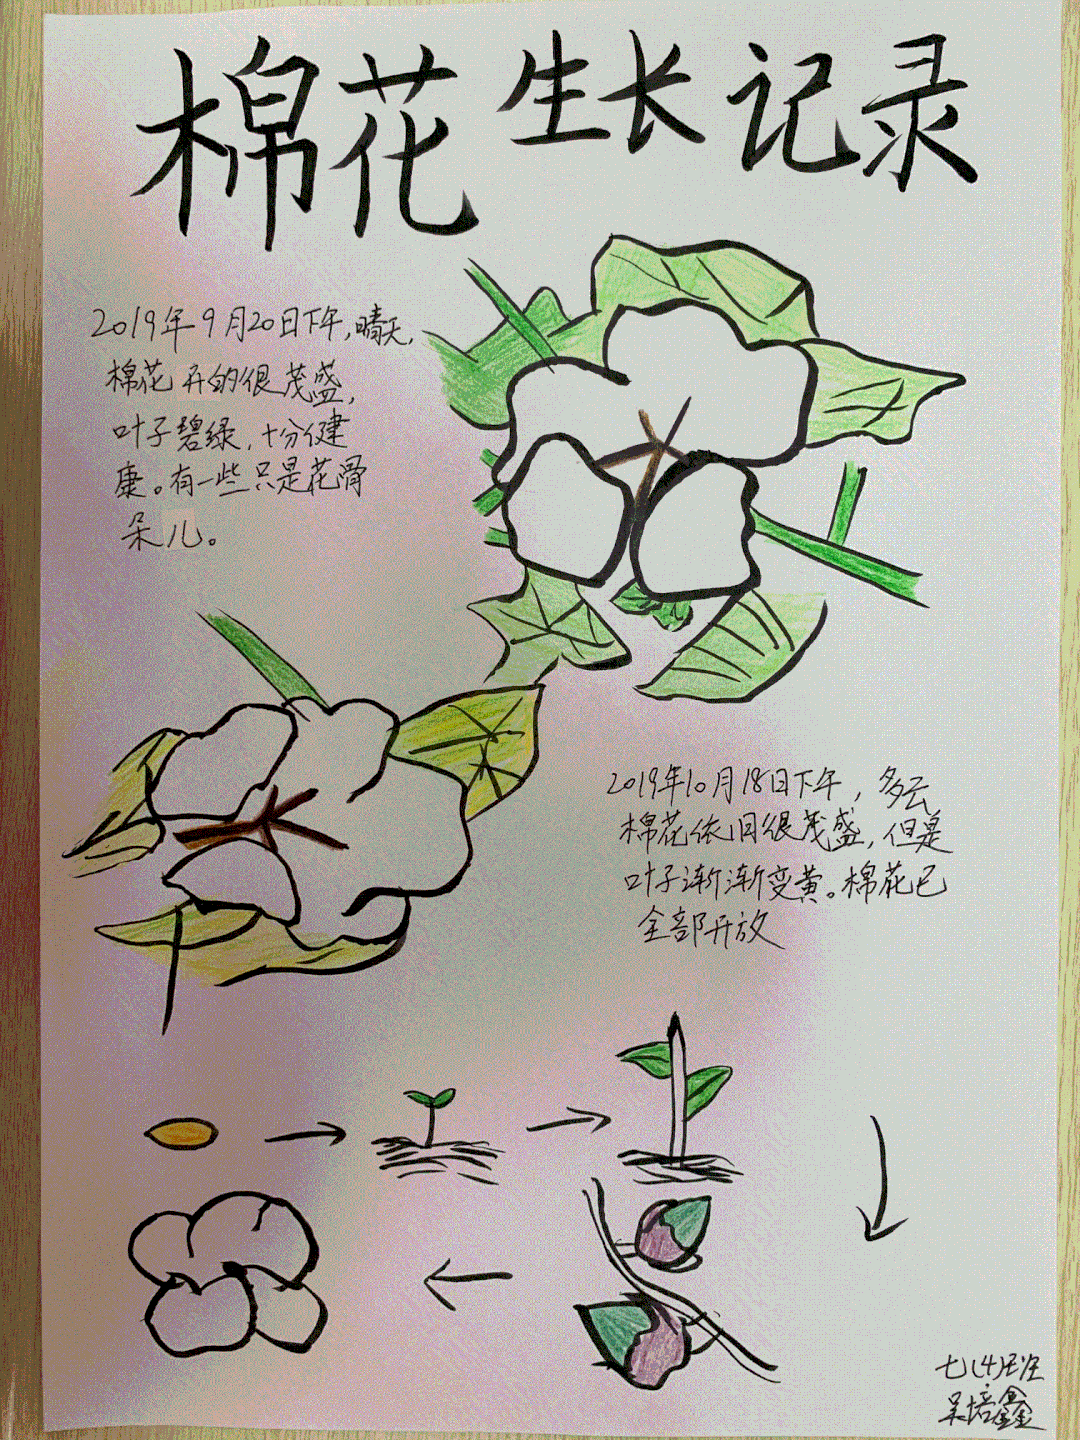 棉花生长记录
2019年9月20日下午,晴天,
棉花开的很茂盛,
叶子碧绿,十分健
康。有一些只是花骨
朵儿。
2019年10月18日下午,多云
棉花依旧很茂盛,但是
叶子渐渐变黄。棉花已
全部开放
七(4)班
吴培鑫